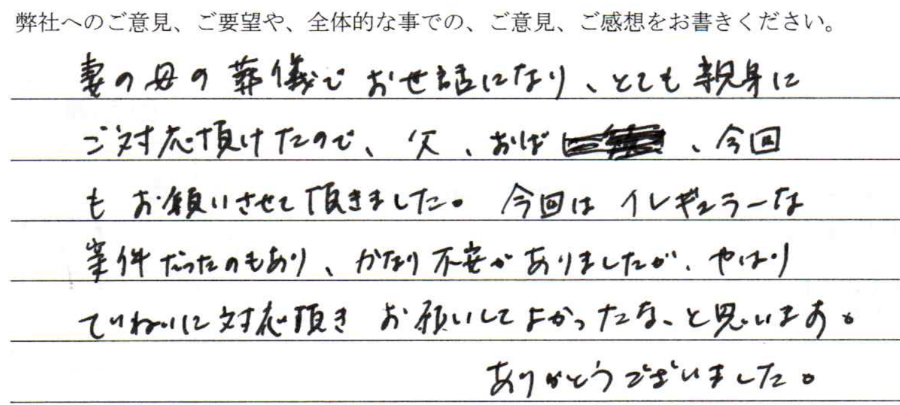 弊社へのご意見、ご要望や、全体的な事での、ご意見、ご感想をお書きください。
妻の母の葬儀でお世話になり、とても親身に
ご対応頂けたので、父、おば、今回
もお願いさせて頂きました。今回はイレギュラーな
案件だったのもあり、かなり不安がありましたが、やはり
ていねいに対応頂きお願いしてよかったな、と思います。
ありがとうございました。